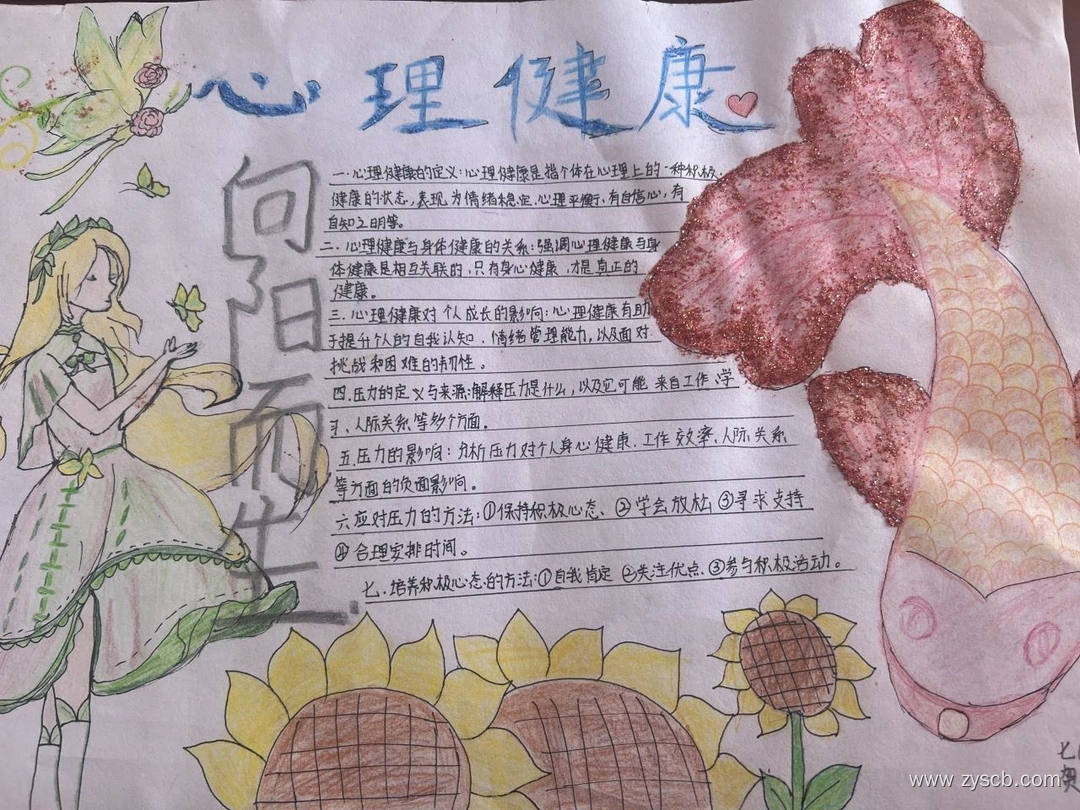 心理健康
向阳而生
一.心理健康的定义:心理健康是指个体在心理上的一种积极.
健康的状态,表现为情绪稳定.心理平衡,有自信心,有
自知之明等。
二.心理健康与身体健康的关系:强调心理健康与身
体健康是相互关联的,只有身心健康,才是真正的
健康。
三.心理健康对个人成长的影响:心理健康有助
于提升个人的自我认知、情绪管理能力,以及面对
挑战和困难的韧性。
四.压力的定义与来源:解释压力是什么,以及它可能来自工作、学
习、人际关系等多个方面。
五.压力的影响:分析压力对个人身心健康.工作效率.人际关系
等方面的负面影响。
六应对压力的方法:①保持积极心态、②学会放松③寻求支持
④合理安排时间。
七.培养积极心态的方法:①自我肯定②关注优点.③参与积极活动。
七
www.zyscb.com